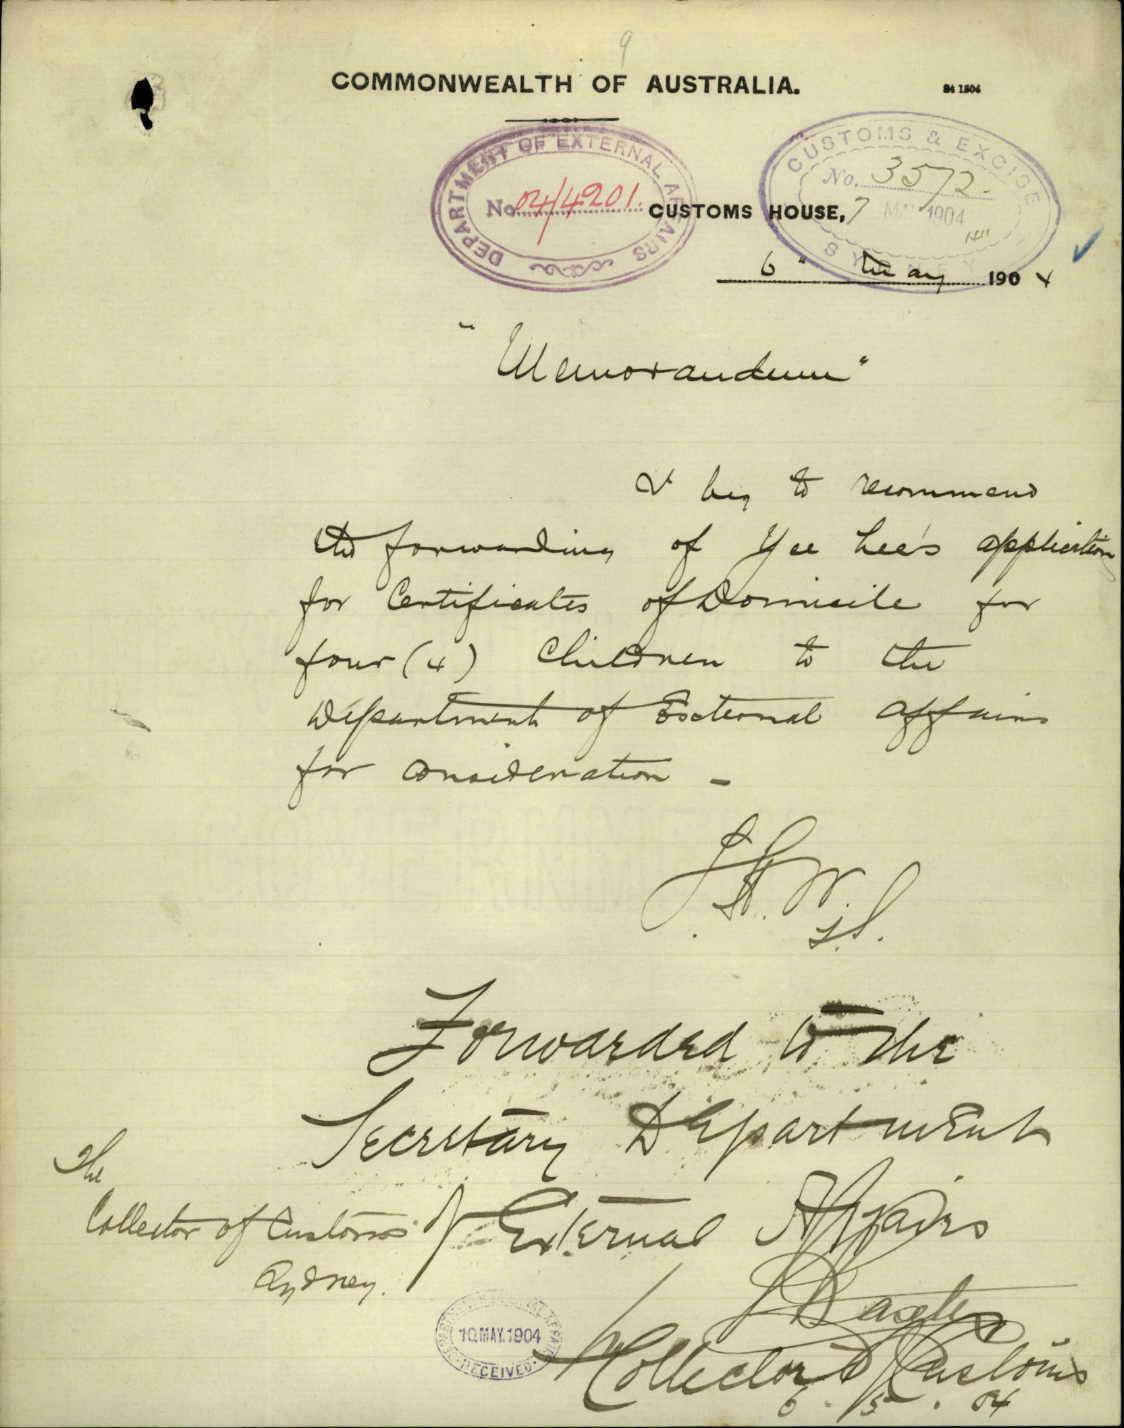 9
COMMONWEALTH OF AUSTRALIA.
DEPARTMENT OF EXTERNAL AFFAIRS
No. 04/4201.
CUSTOMS & EXCISE
No. 3572
7 MAY 1904
SYDNEY
CUSTOMS HOUSE,
6" May 1904
"Memorandum"
I beg to recommend
the forwarding of Yee Lee's application
for Certificates of Domicile for
four (4) Children to the
Department of External Affairs
for consideration -
Forwarded to the
Secretary Department
of External Affairs
The
Collector of Customs
Sydney.
Collector of Customs
6.5.04
10.MAY.1904
RECEIVED